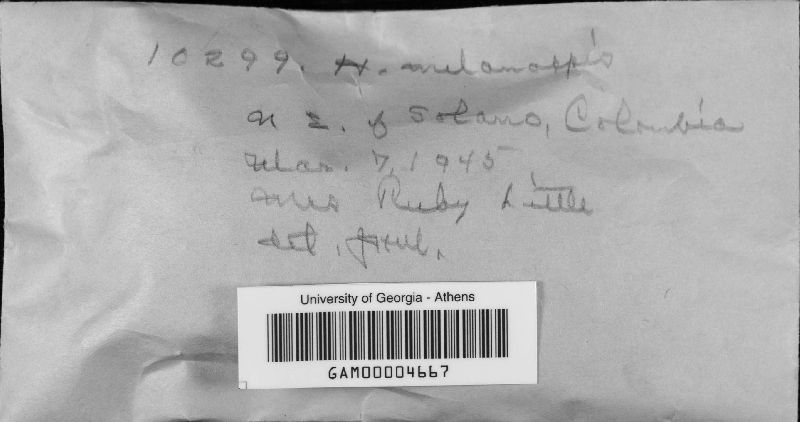 10299. H. melanaspis
N E. of Solano, Colombia
Mar. 7, 1945
Mrs Ruby Little
det.
University of Georgia - Athens
GAM00004667